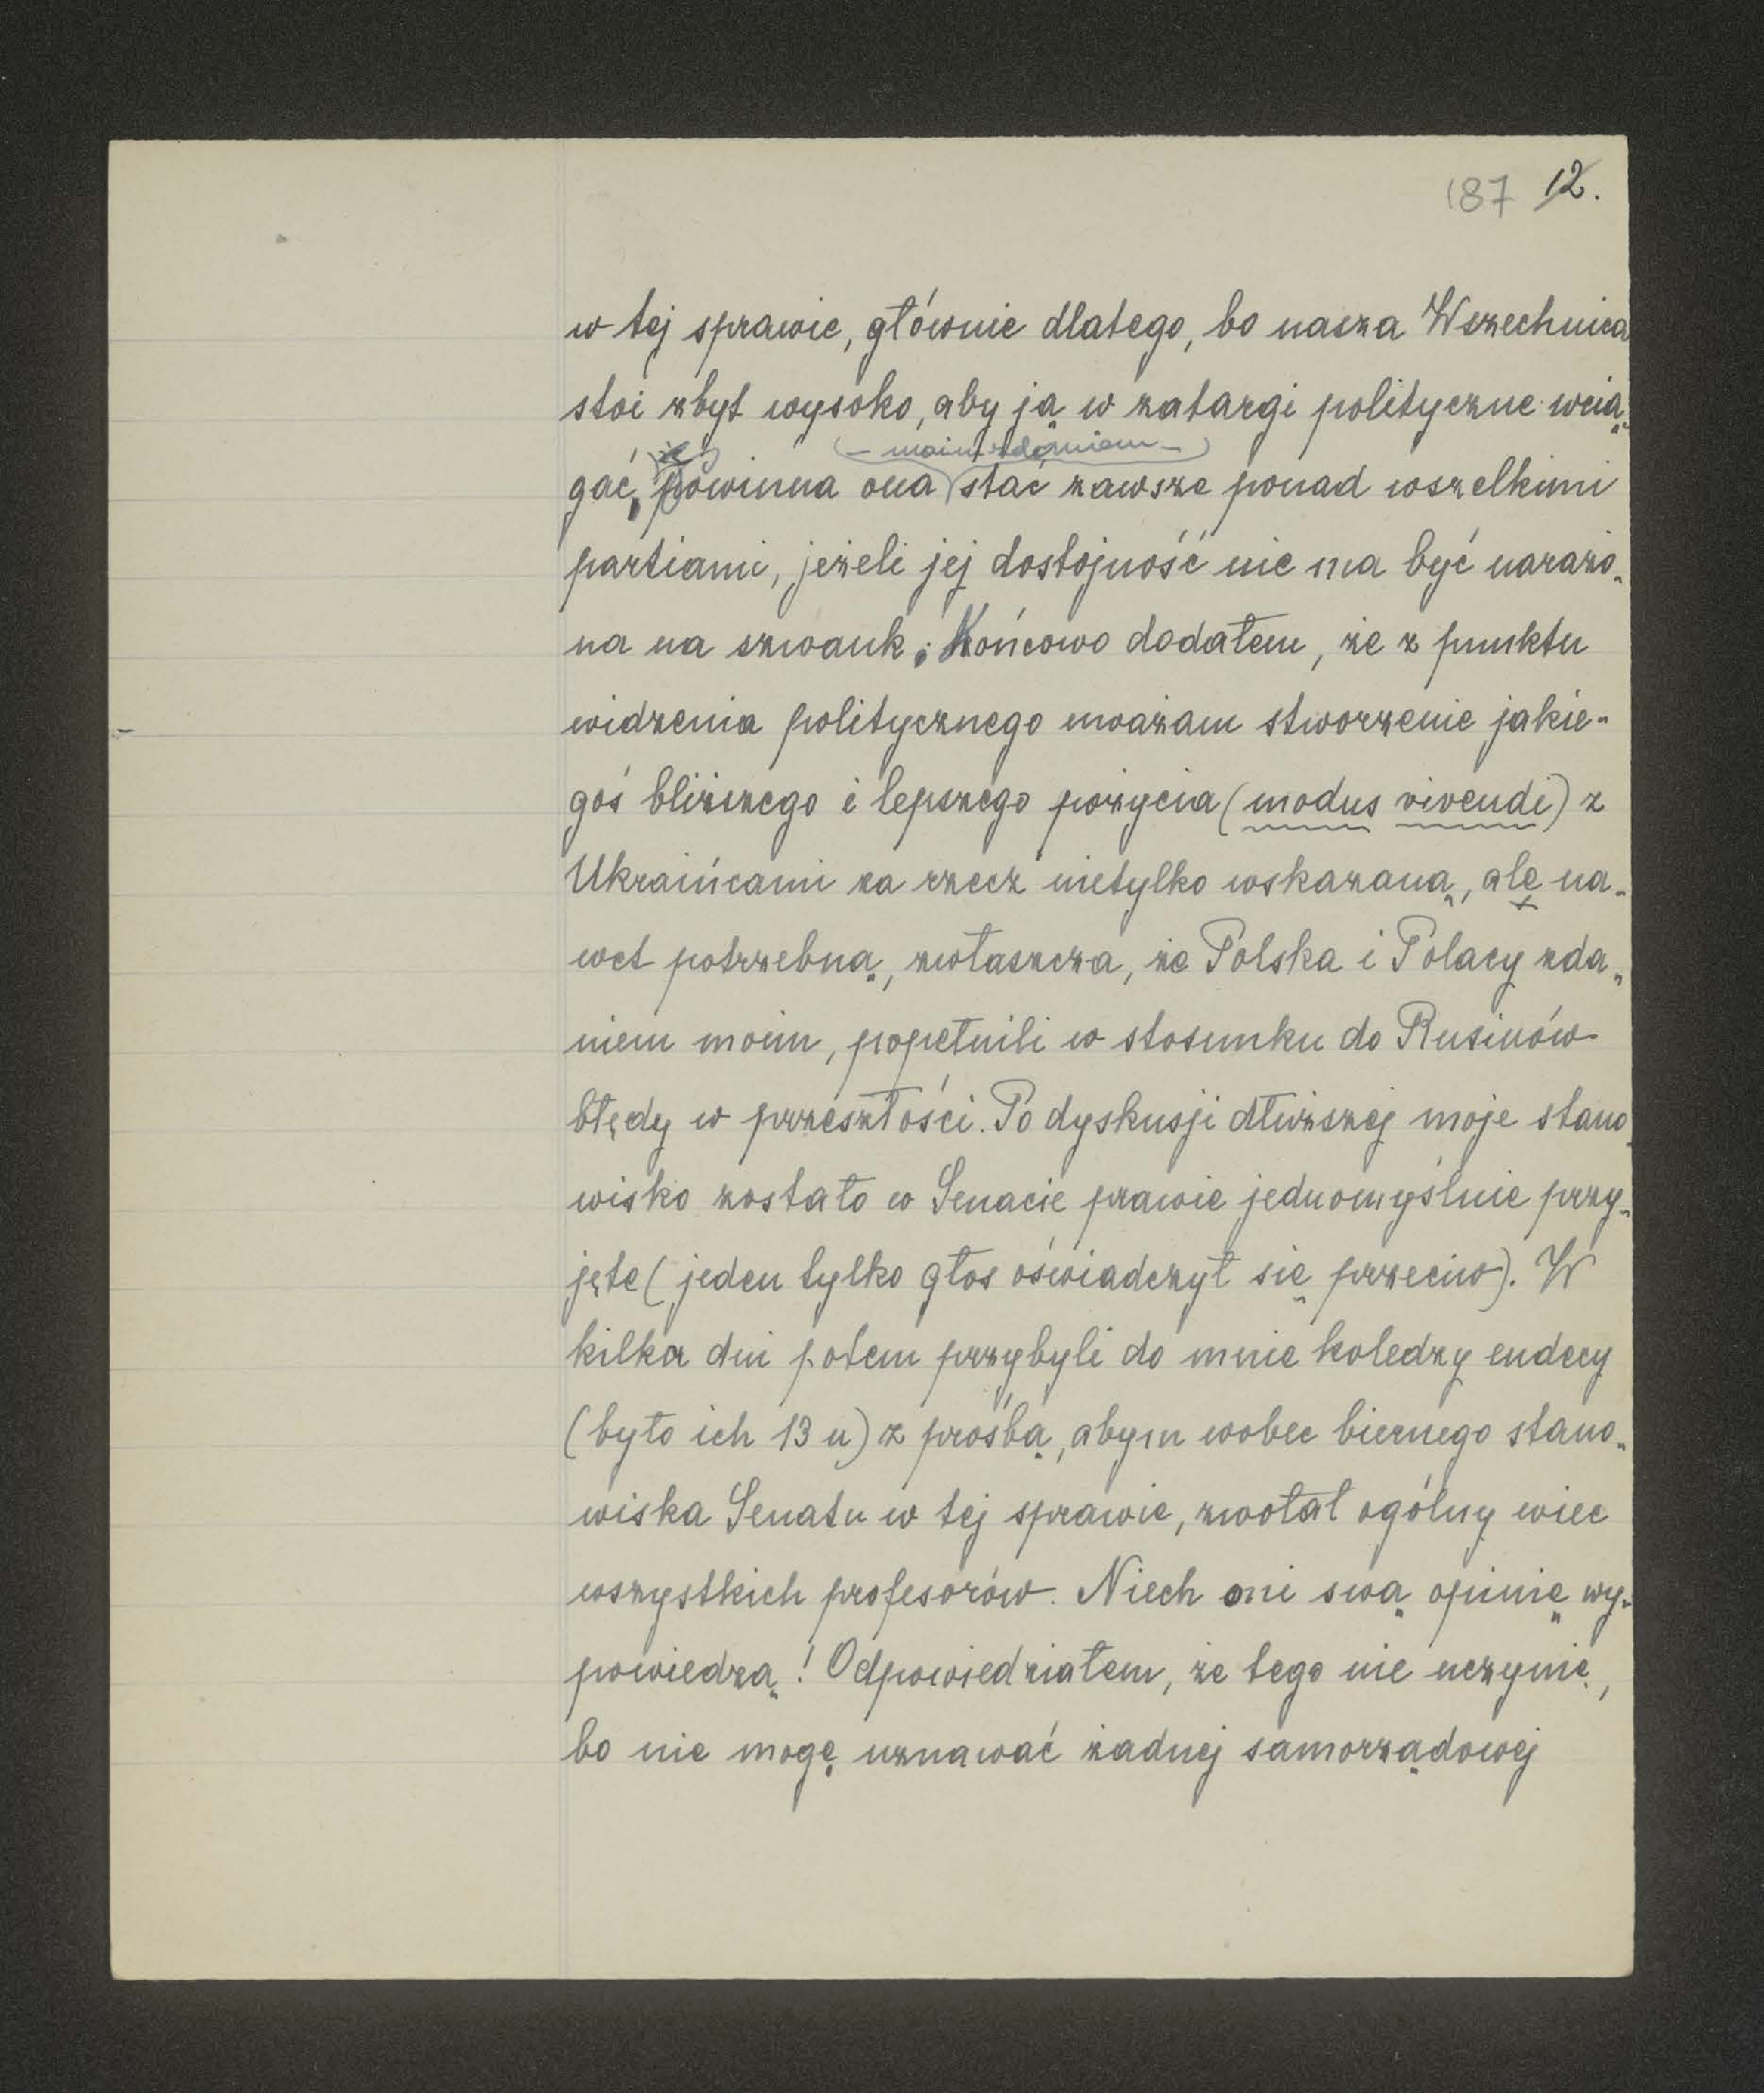 187 12.
w tej sprawie, głównie dlatego, bo nasza Wszechnica
stoi zbyt wysoko, aby ją w zatargi polityczne wcią-
– moim zdaniem –
gać, powinna ona stać zawsze ponad wszelkimi
partiami, jeżeli jej dostojność nie ma być narażo-
na na szwank. Końcowo dodałem, że z punktu
widzenia politycznego uważam stworzenie jakie-
goś bliższego i lepszego pożycia (modus vivendi) z
Ukraińcami za rzecz nietylko wskazaną, ale na-
wet potrzebną, zwłaszcza, że Polska i Polacy zda-
niem moim, popełnili w stosunku do Rusinów
błędy w przeszłości. Po dyskusji dłuższej moje stano-
wisko zostało w Senacie prawie jednomyślnie przy-
jęte (jeden tylko głos oświadczył się przeciw). W
kilka dni potem przybyli do mnie koledzy endecy
(było ich 13 u) z prośbą, abym wobec biernego stano-
wiska Senatu w tej sprawie, zwołał ogólny wiec
wszystkich profesorów. Niech oni swą opinię wy-
powiedzą! Odpowiedziałem, że tego nie uczynię,
bo nie mogę uznawać żadnej samorządowej